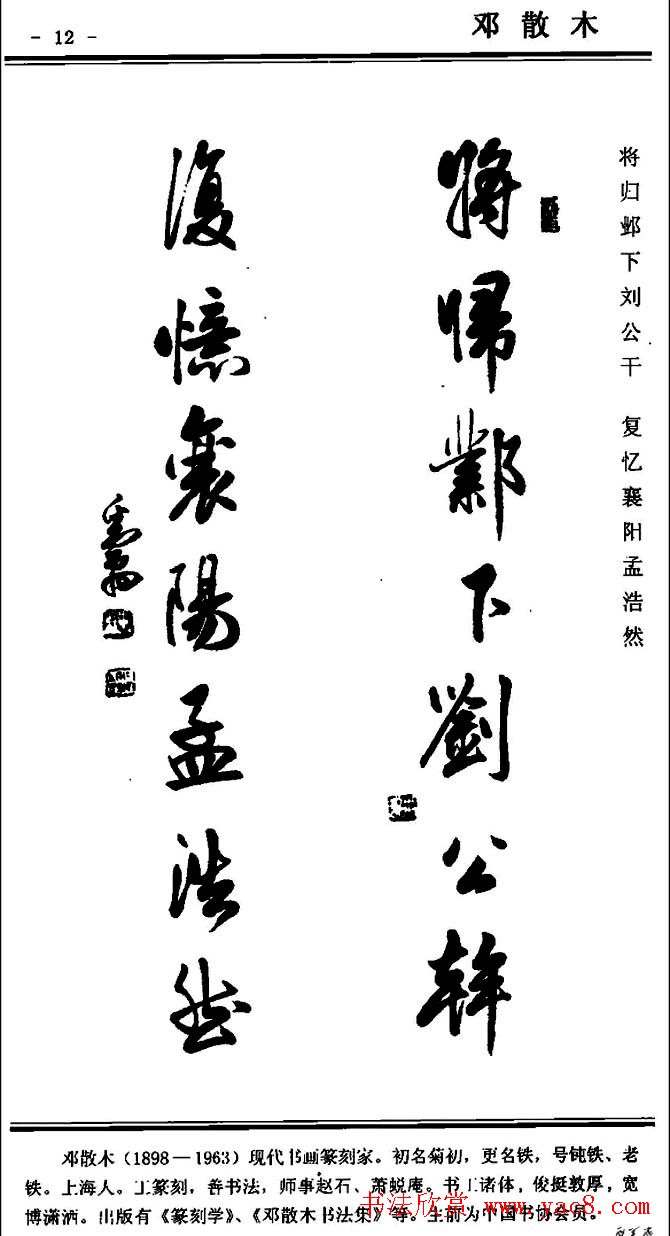 - 12 -
邓散木
将归邺下刘公干 复忆襄阳孟浩然
將歸鄴下劉公幹
復憶襄陽孟浩然
邓散木（1898—1963）现代书画篆刻家。初名菊初，更名铁，号钝铁、老
铁。上海人。工篆刻，善书法，师事赵石、萧蜕庵。书工诸体，俊挺敦厚，宽
博潇洒。出版有《篆刻学》、《邓散木书法集》等。生前为中国书协会员。
书法欣赏 www.yac8.com